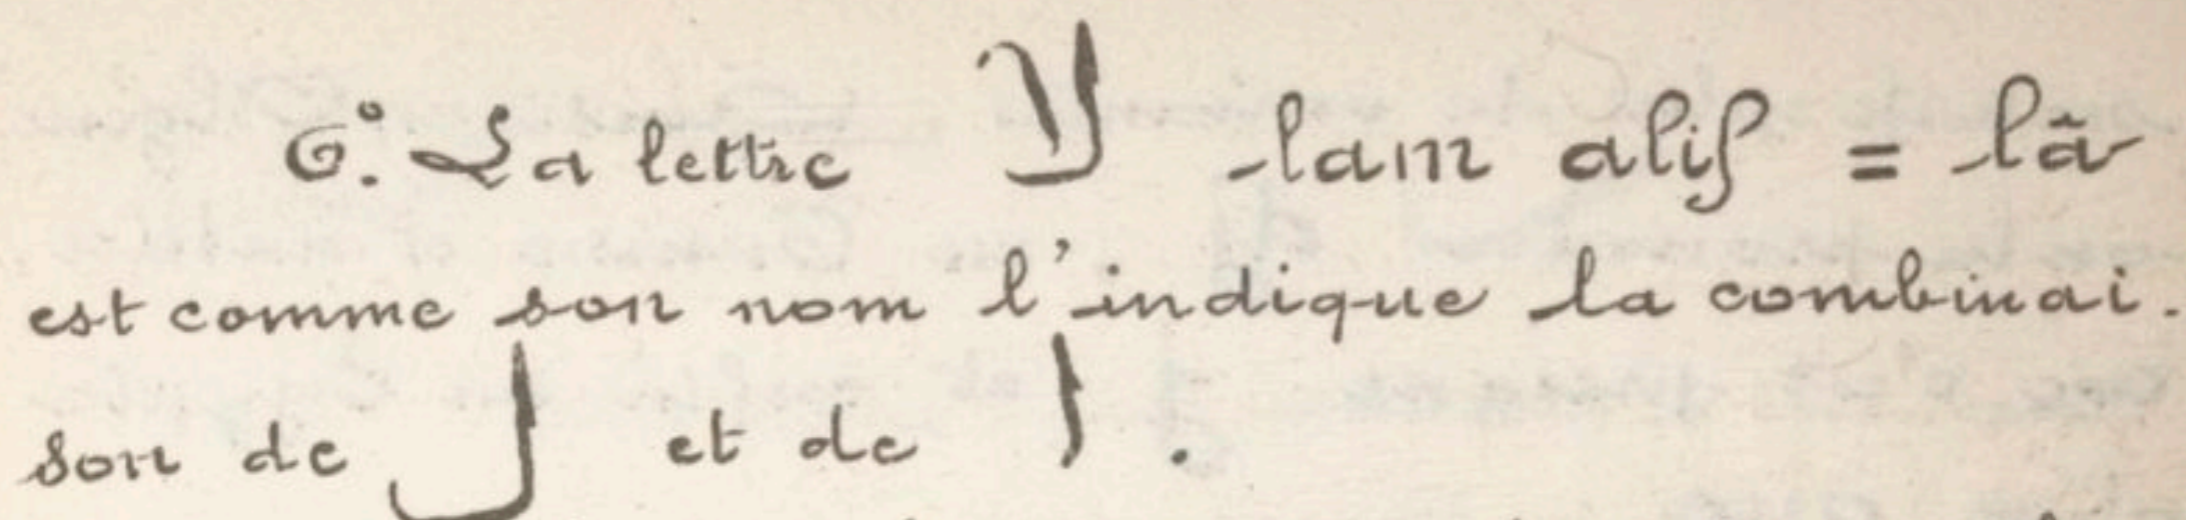 6°. La lettre لا lam alif = lâ
est comme son nom l'indique la combinai-
son de ل et de ا.